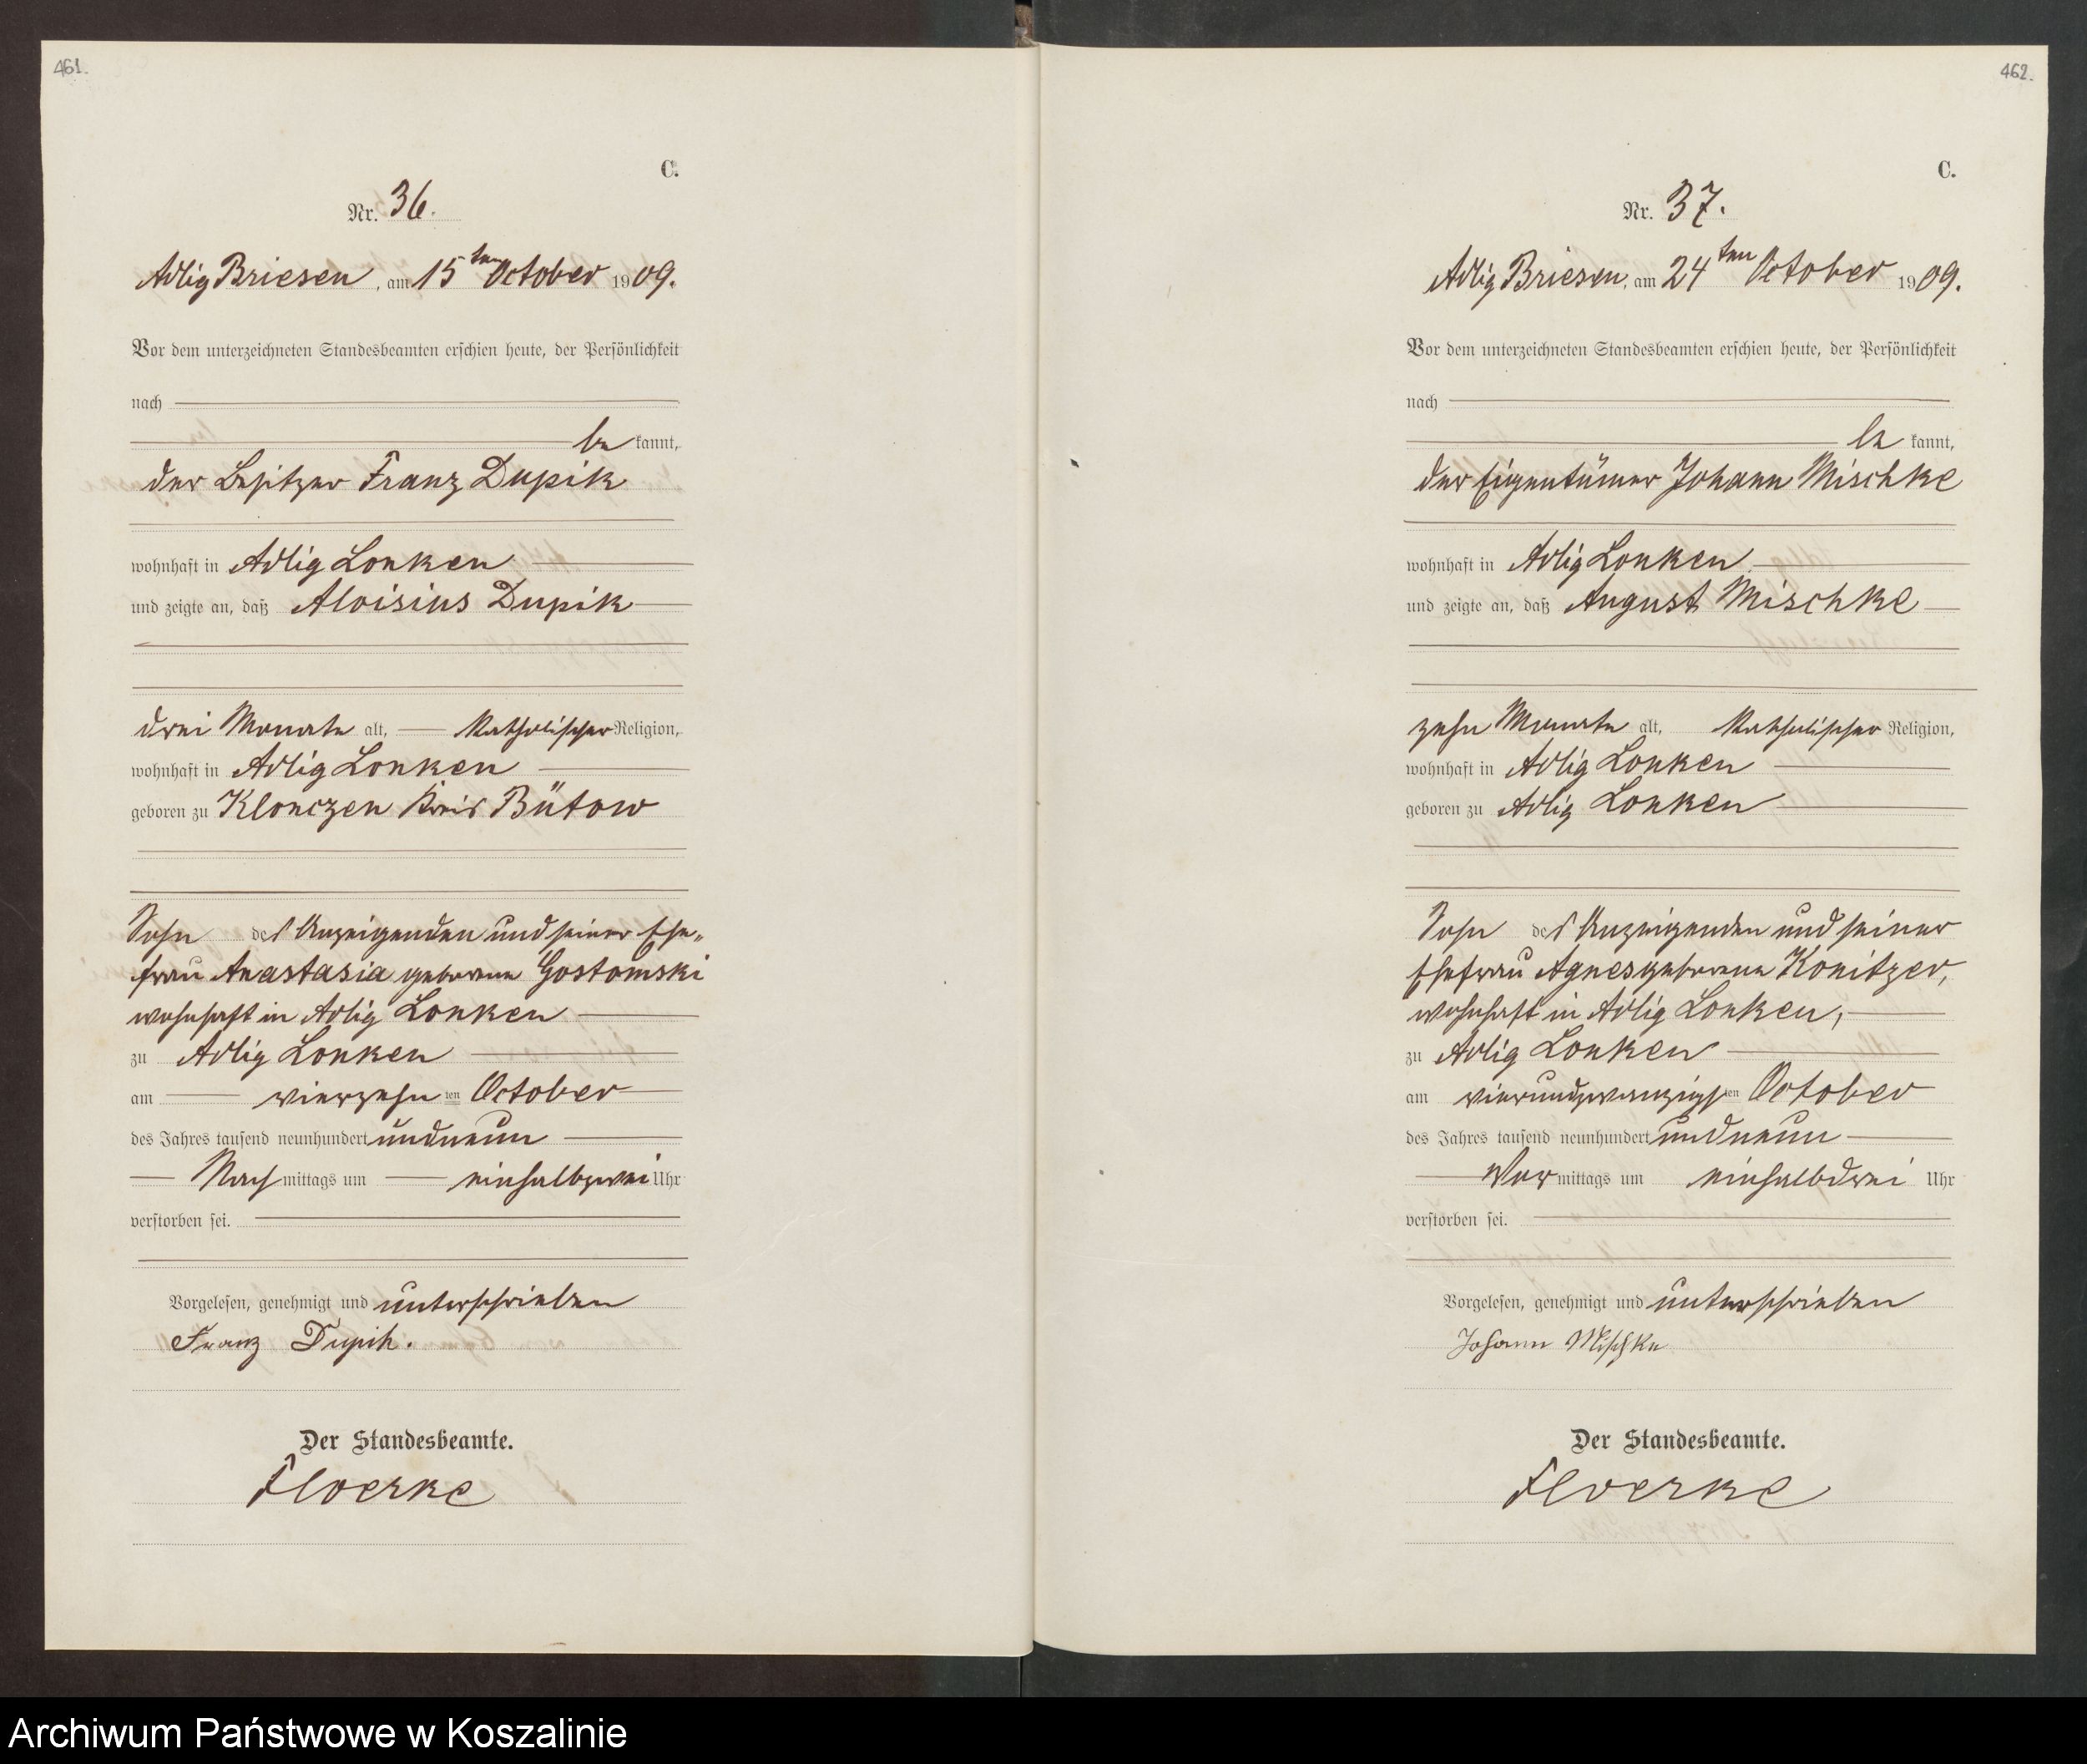 461.
C.
Nr. 36.
Adlig Briesen, am 15ten October 1909.
Vor dem unterzeichneten Standesbeamten erschien heute, der Persönlichkeit
nach
be kannt,
der Besitzer Franz Dupik
wohnhaft in Adlig Lonken
und zeigte an, daß Aloisius Dupik
drei Monate alt, katholischer Religion,
wohnhaft in Adlig Lonken
geboren zu Klonczen Kreis Bütow
Sohn des Anzeigenden und seiner Ehe-
frau Anastasia geborene Gostomski
wohnhaft in Adlig Lonken
zu Adlig Lonken
am vierzehnten October
des Jahres tausend neunhundert undneun
Nachmittags um einhalbzwei Uhr
verstorben sei.
Vorgelesen, genehmigt und unterschrieben
Franz Dupik.
Der Standesbeamte.
Floerke
462.
C.
Nr. 37.
Adlig Briesen, am 24ten October 1909.
Vor dem unterzeichneten Standesbeamten erschien heute, der Persönlichkeit
nach
be kannt,
der Eigentümer Johann Mischke
wohnhaft in Adlig Lonken
und zeigte an, daß August Mischke
zehn Monate alt, katholischer Religion,
wohnhaft in Adlig Lonken
geboren zu Adlig Lonken
Sohn des Anzeigenden und seiner
Ehefrau Agnes geborene Konitzer,
wohnhaft in Adlig Lonken,
zu Adlig Lonken
am vierundzwanzigsten October
des Jahres tausend neunhundert undneun
Vormittags um einhalbdrei Uhr
verstorben sei.
Vorgelesen, genehmigt und unterschrieben
Johann Mischke
Der Standesbeamte.
Floerke
Archiwum Państwowe w Koszalinie